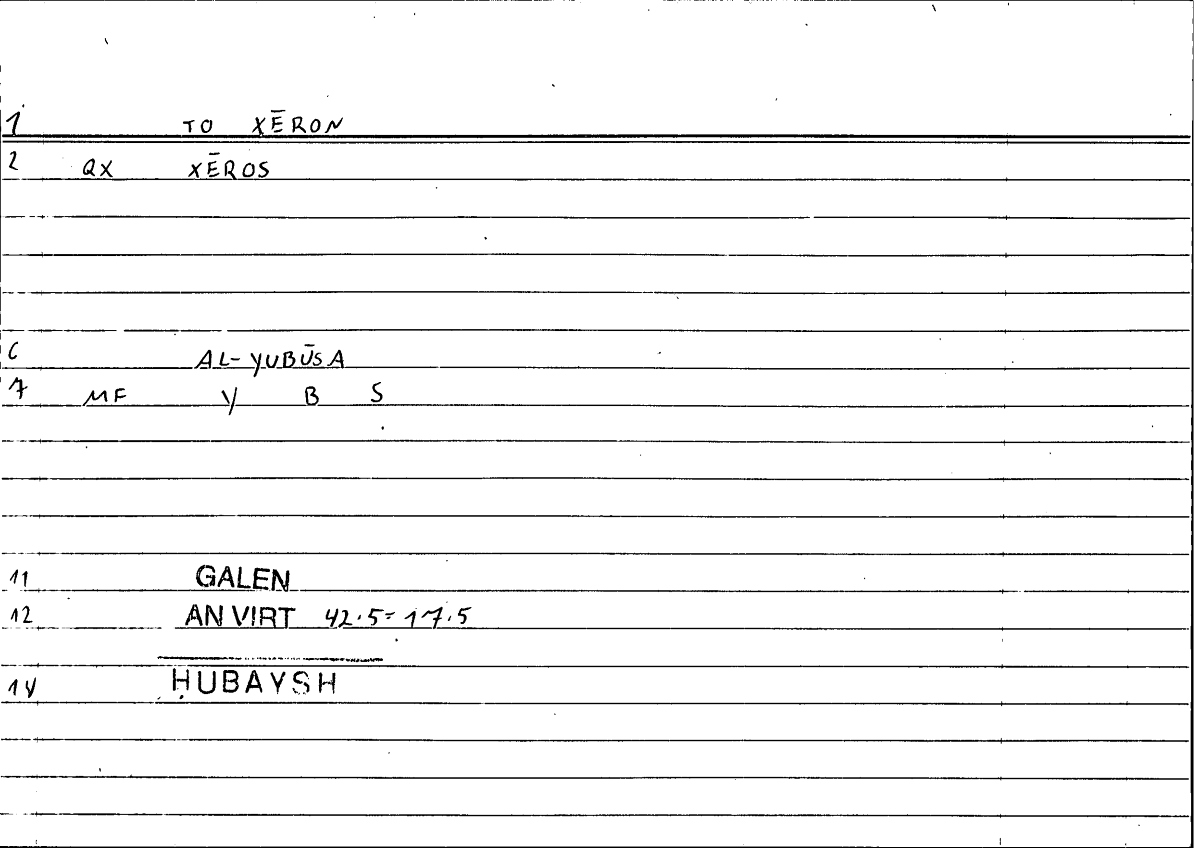 1 TO XĒRON
2 QX XĒROS
6 AL-YUBŪSA
7 MF Y B S
11 GALEN
12 AN VIRT 42.5=17.5
14 ḤUBAYSH